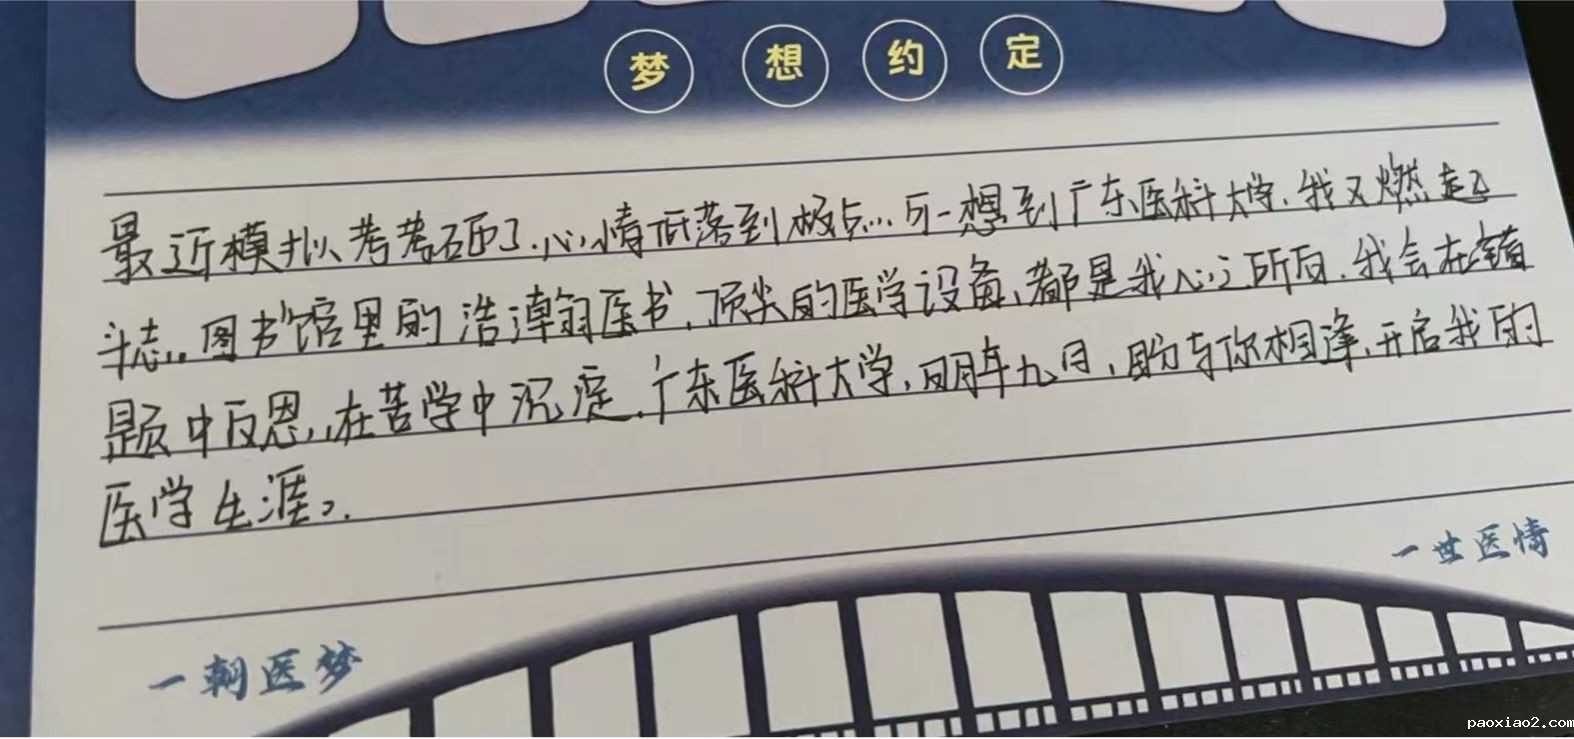 梦想约定
最近模拟考考砸了,心情低落到极点..可一想到广东医科大学,我又燃起
斗志,,图书馆里的浩瀚医书,顶尖的医学设备,都是我心之所向,我会在错
题中反思,,在苦学中沉淀,广东医科大学,明年九月,盼与你相逢,开启我的
医学生涯。.
一世医情
一朝医梦
paoxiao2.com